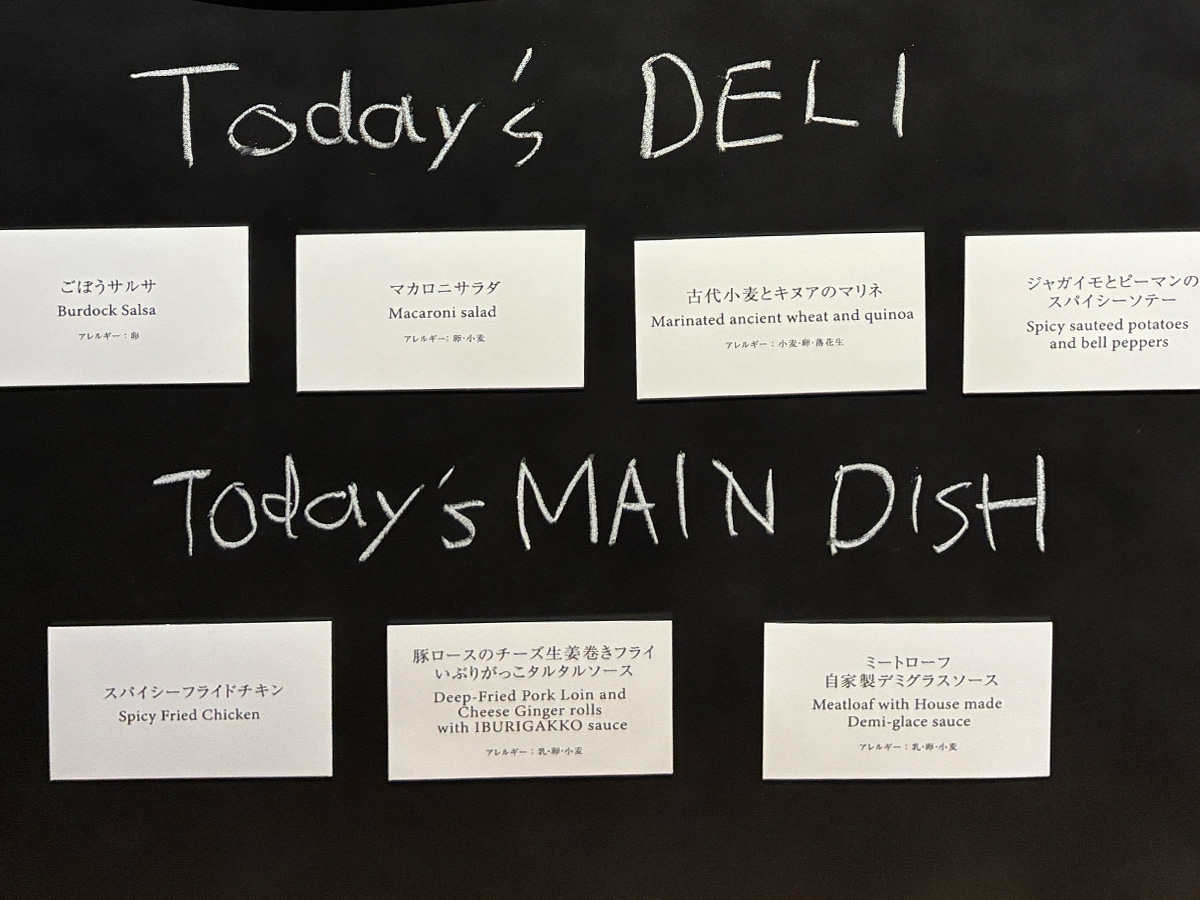 Today's DELI
ごぼうサルサ
Burdock Salsa
アレルギー：卵
マカロニサラダ
Macaroni salad
アレルギー：卵・小麦
古代小麦とキヌアのマリネ
Marinated ancient wheat and quinoa
アレルギー：小麦・卵・落花生
ジャガイモとピーマンの
スパイシーソテー
Spicy sauteed potatoes
and bell peppers
Today's MAIN DISH
スパイシーフライドチキン
Spicy Fried Chicken
豚ロースのチーズ生姜巻きフライ
いぶりがっこタルタルソース
Deep-Fried Pork Loin and
Cheese Ginger rolls
with IBURIGAKKO sauce
アレルギー：乳・卵・小麦
ミートローフ
自家製デミグラスソース
Meatloaf with House made
Demi-glace sauce
アレルギー：乳・卵・小麦